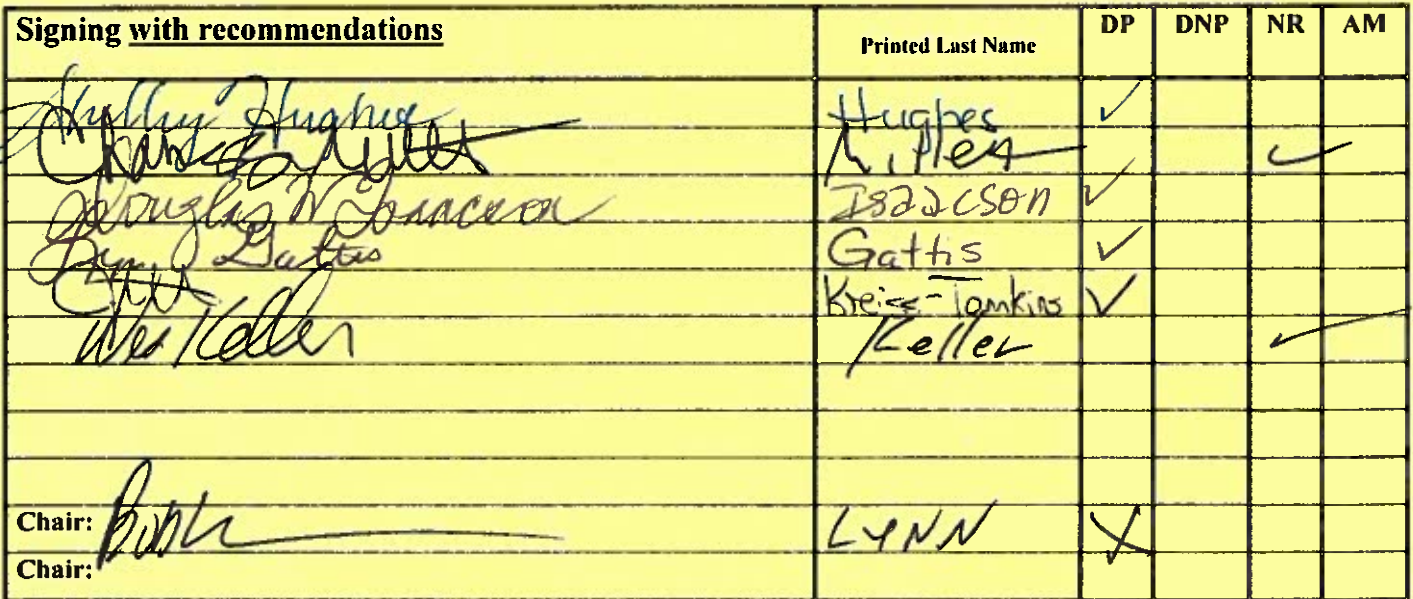 Signing with recommendations Printed Last Name DP DNP NR AM
Shelley Hughes Hughes ✓
Miller ✓
Douglas W Isaacson Isaacson ✓
Lynn Gattis Gattis ✓
Kreiss-Tomkins ✓
Wes Keller Keller ✓
Chair: LYNN X
Chair: